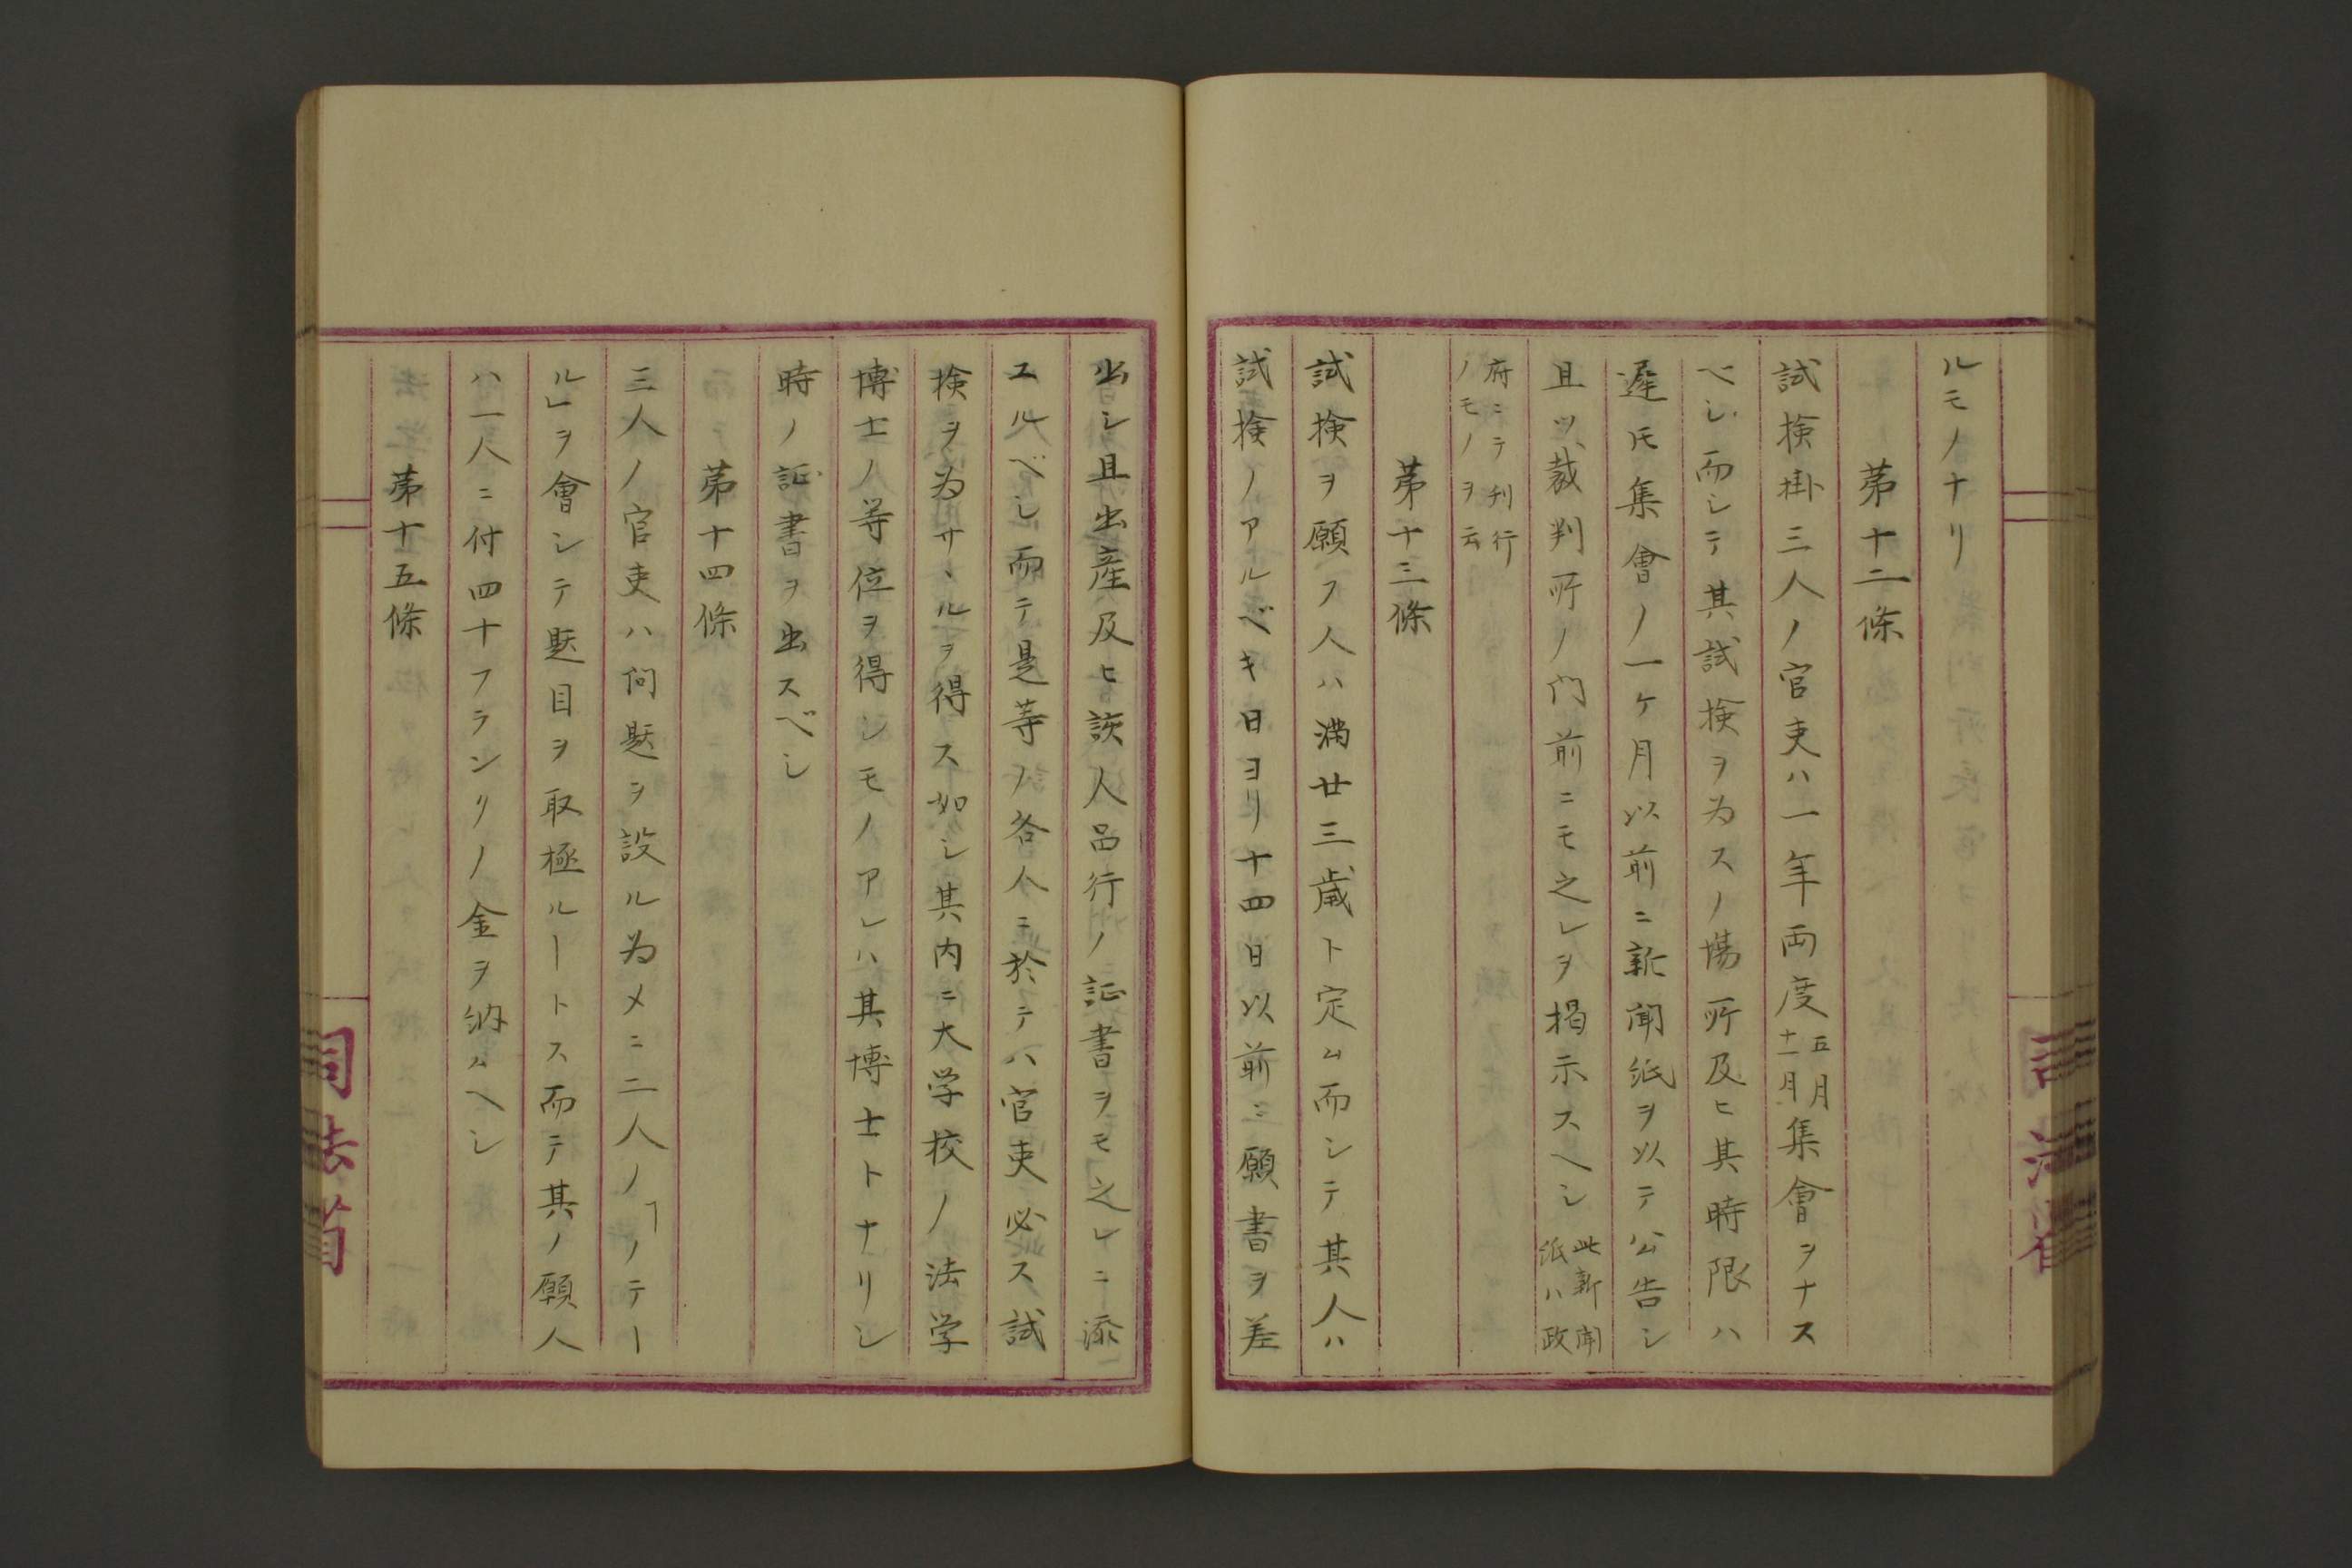 ルモノナリ
第十二條
試検掛三人ノ官吏ハ一年両度五月十一月集會ヲナス
ベシ而シテ其試検ヲ為スノ場所及ヒ其時限ハ
遅圧集會ノ一ケ月以前ニ新聞紙ヲ以テ公告シ
且ツ裁判所ノ門前ニモ之レヲ掲示スヘシ此新聞紙ハ政
府ニテ刊行ノモノヲ云
第十三條
試検ヲ願フ人ハ満廿三歳ト定ム而シテ其人ハ
試検ノアルベキ日ヨリ十四日以前ニ願書ヲ差
出シ且出産及ヒ該人品行ノ証書ヲモ之レニ添
エルベシ而テ是等ノ各人ニ於テハ官吏必ス試
検ヲ為サヽルヲ得ス如シ其内ニ大学校ノ法学
博士ノ等位ヲ得シモノアレハ其博士トナリシ
時ノ証書ヲ出スベシ
第十四條
三人ノ官吏ハ問題ヲ設ル為メニ二人ノ「ノテー
ル」ヲ會シテ題目ヲ取極ルートス而テ其ノ願人
ハ一人ニ付四十フランリノ金ヲ納ムヘシ
第十五條
司法省